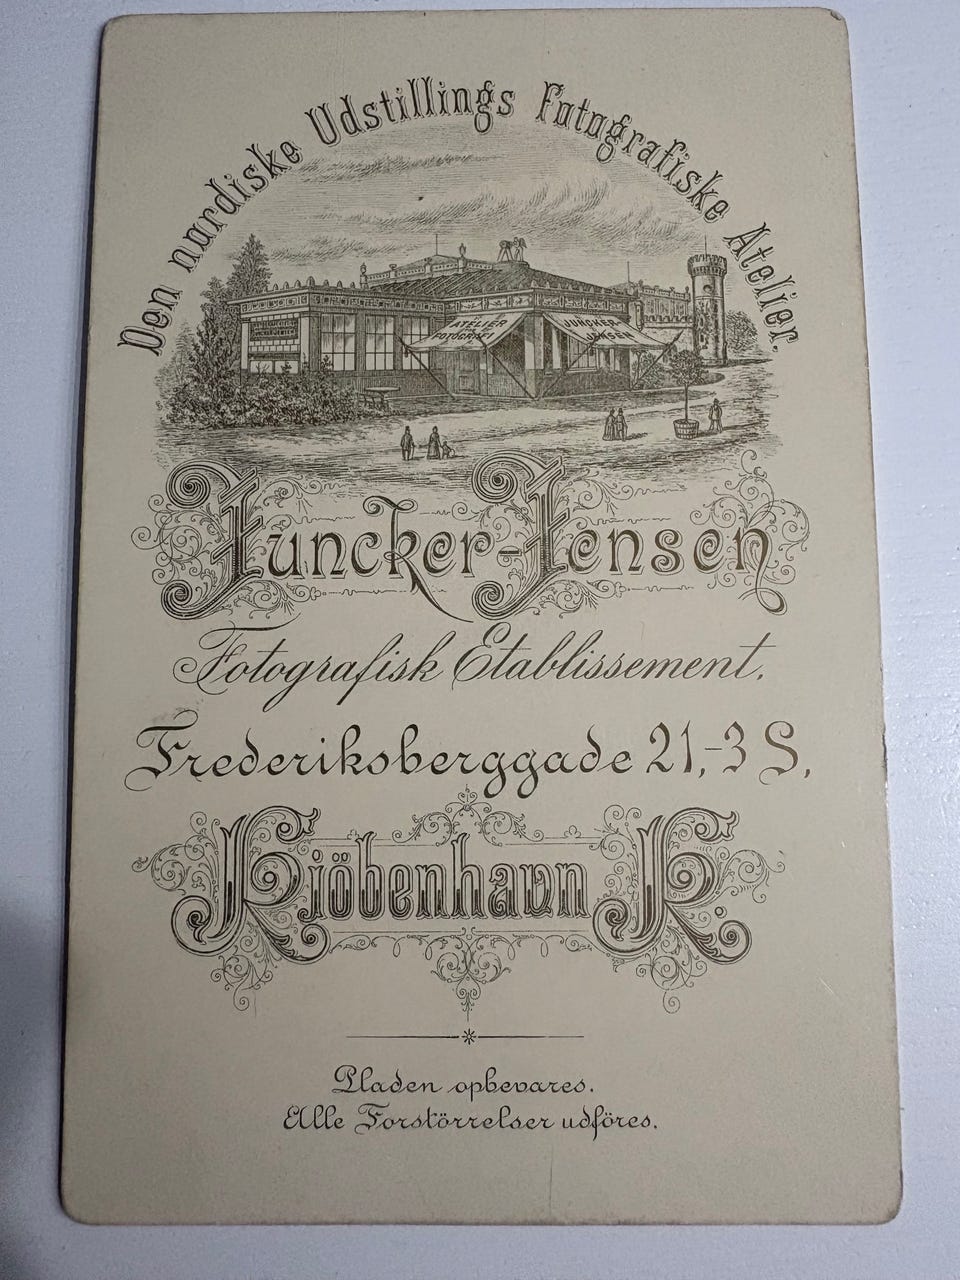 Den nordiske Udstillings Fotografiske Atelier.
ATELIER
FOTOGRAFI
JUNCKER-
JENSEN
Juncker-Jensen
Fotografisk Etablissement.
Frederiksberggade 21,-3 S,
Kiöbenhavn K.
Pladen opbevares.
Alle Forstörrelser udföres.